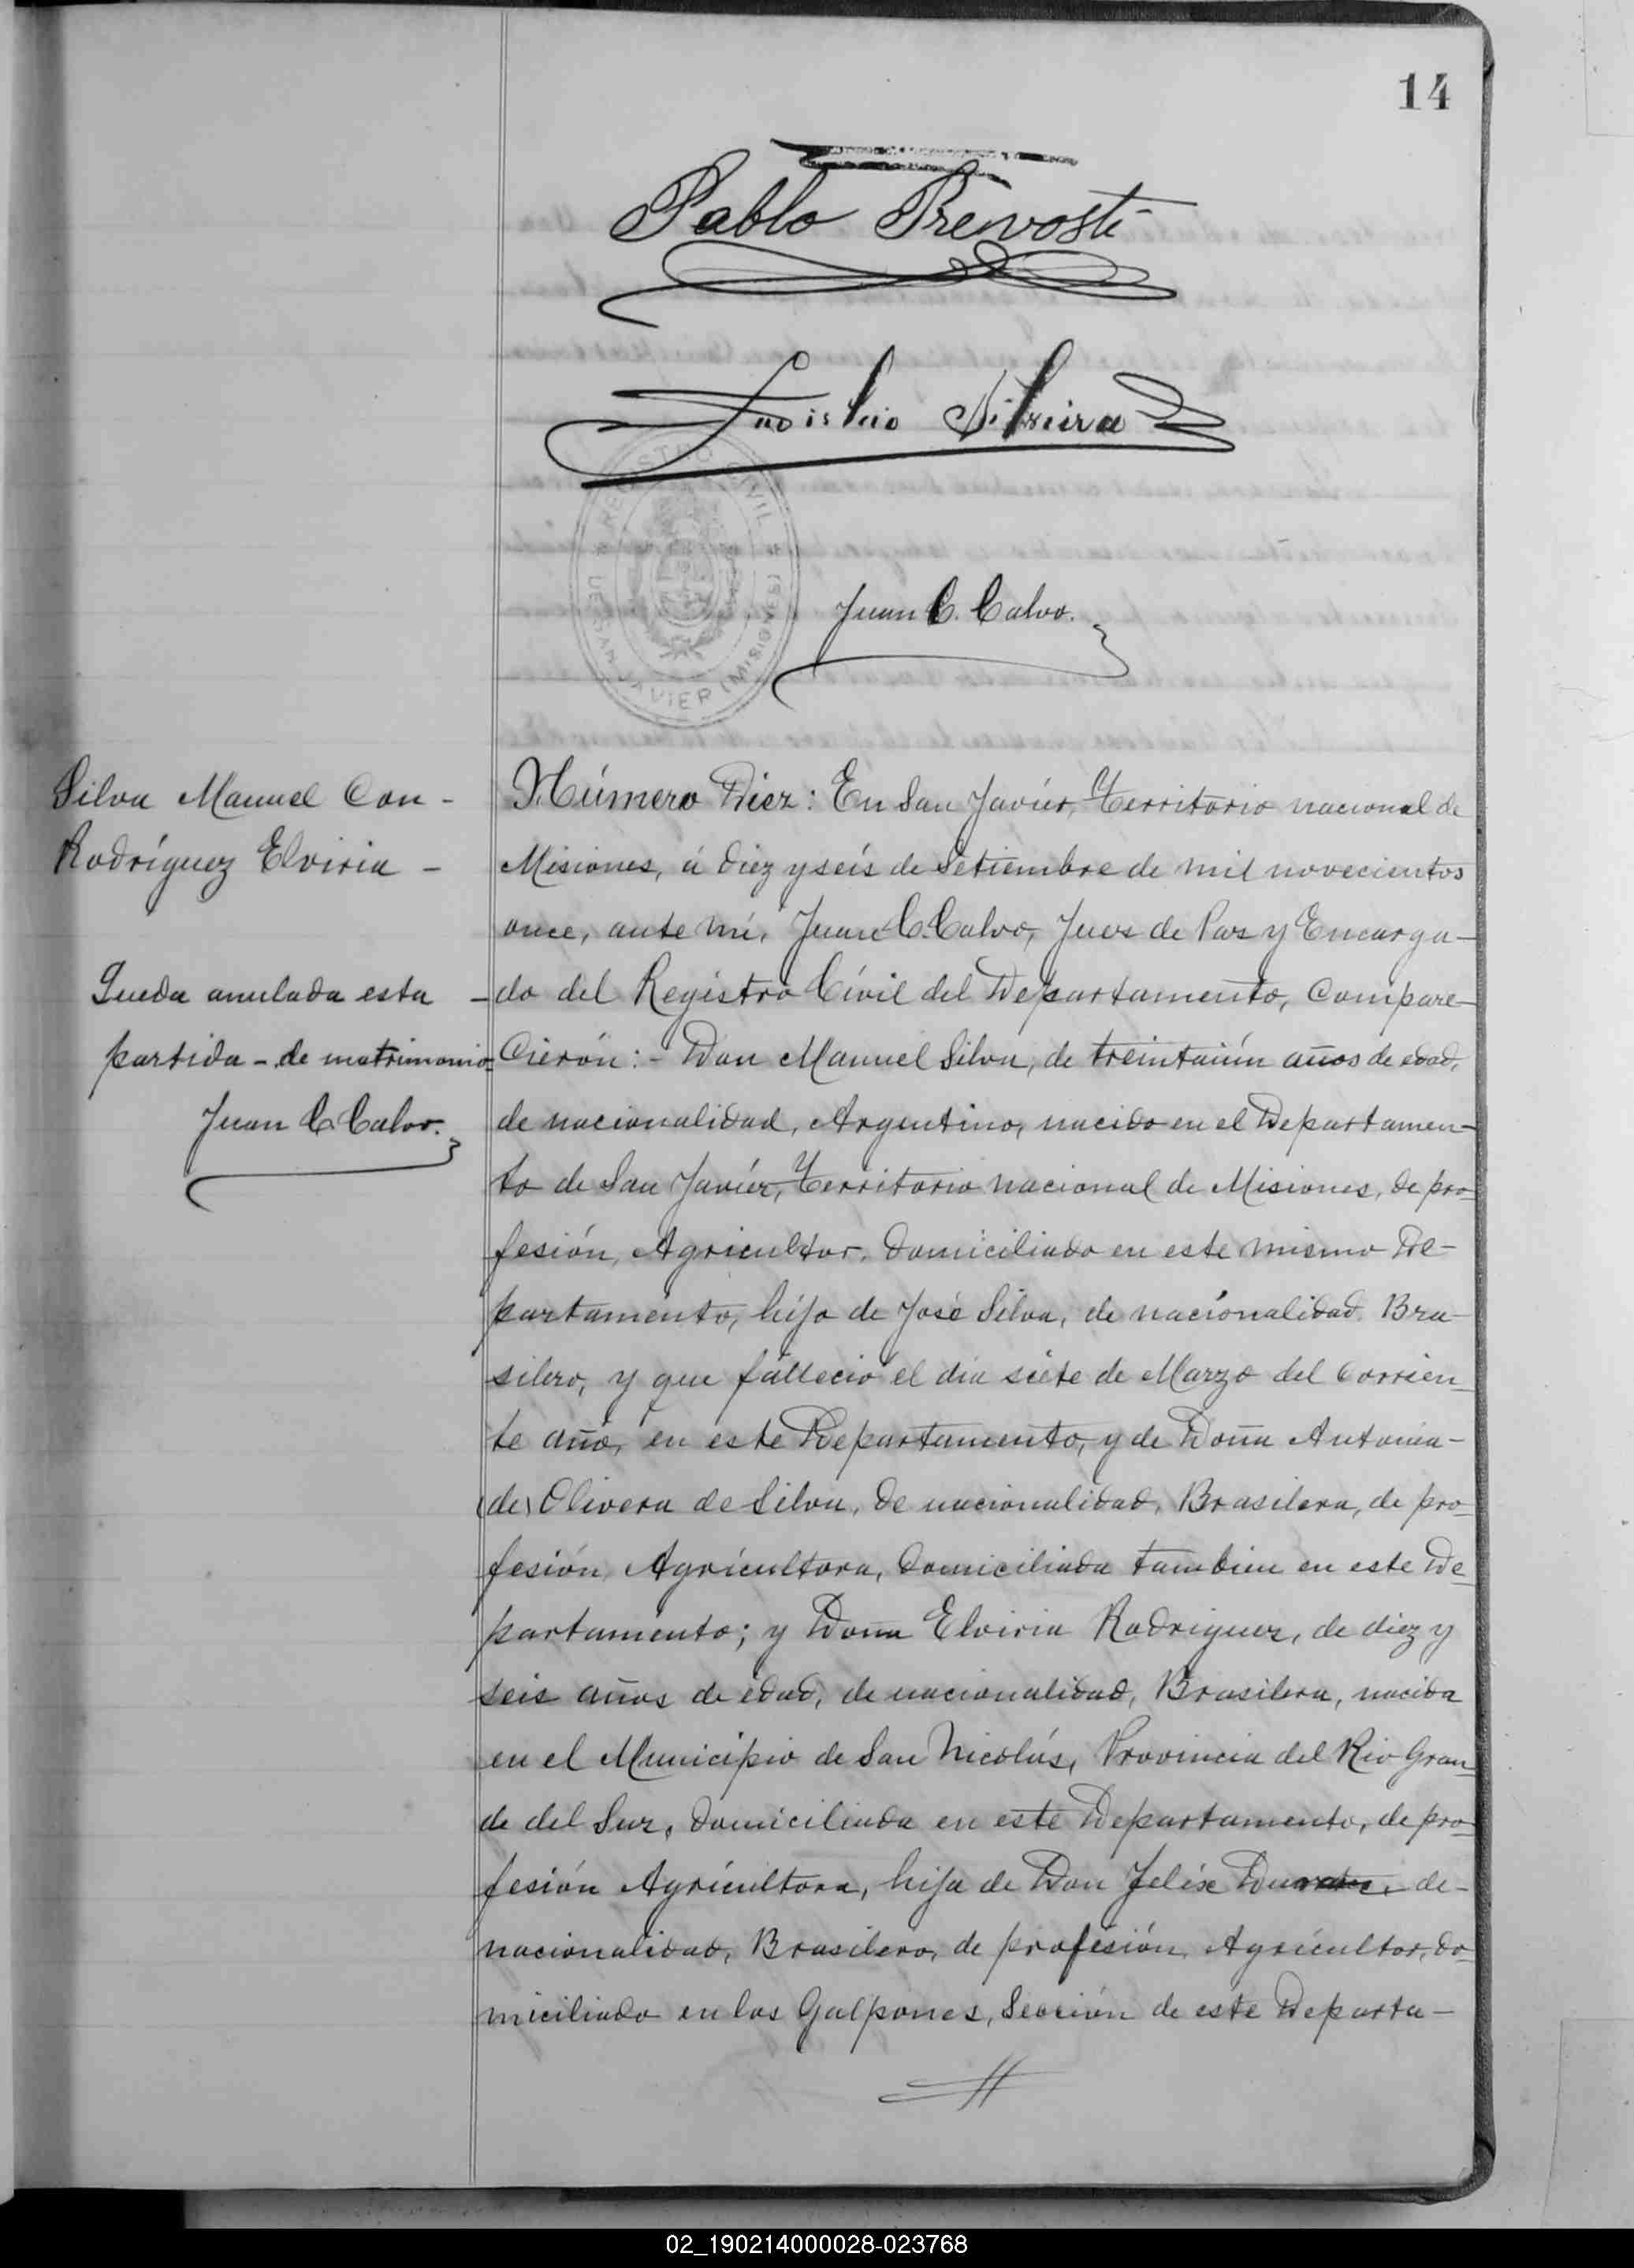 14
Pablo Prevosti
Ladislao Silveira
REGISTRO CIVIL
DE SAN JAVIER (MISIONES)
Juan C. Calvo.
Silva Manuel Con -
Rodríguez Elviria -
Queda anulada esta -
partida - de matrimonio -
Juan C. Calvo.
Número Diez: En San Javiér, Territorio nacional de
Misiones, á diez y seis de Setiembre de mil novecientos
once, ante mí, Juan C. Calvo, Jues de Pas y Encarga-
do del Registro Civil del Departamento, Compare-
Cierón: - Don Manuel Silva, de treintaiún años de edad,
de nacionalidad, Argentino, nacido en el Departamen-
to de San Javiér, Territorio nacional de Misiones, de pro-
fesión, Agricultor, domiciliado en este mismo De-
partamento, hijo de José Silva, de nacionalidad Bra-
silero, y que falleció el día siete de Marzo del Corrien-
te año, en este Departamento, y de Doña Antonia -
(de) Olivera de Silva, de nacionalidad, Brasilera, de pro-
fesión, Agricultora, domiciliada tambien en este De-
partamento; y Doña Elviria Rodriguez, de diez y
seis años de edad, de nacionalidad, Brasilera, nacida
en el Municipio de San Nicolás, Provincia del Rio Gran-
de del Sur, domiciliada en este Departamento, de pro-
fesión Agricultora, hija de Don Felix Duarte, de -
nacionalidad, Brasilero, de profesión, Agricultor, do-
miciliado en los Galpones, Sección de este Departa-
02_190214000028-023768